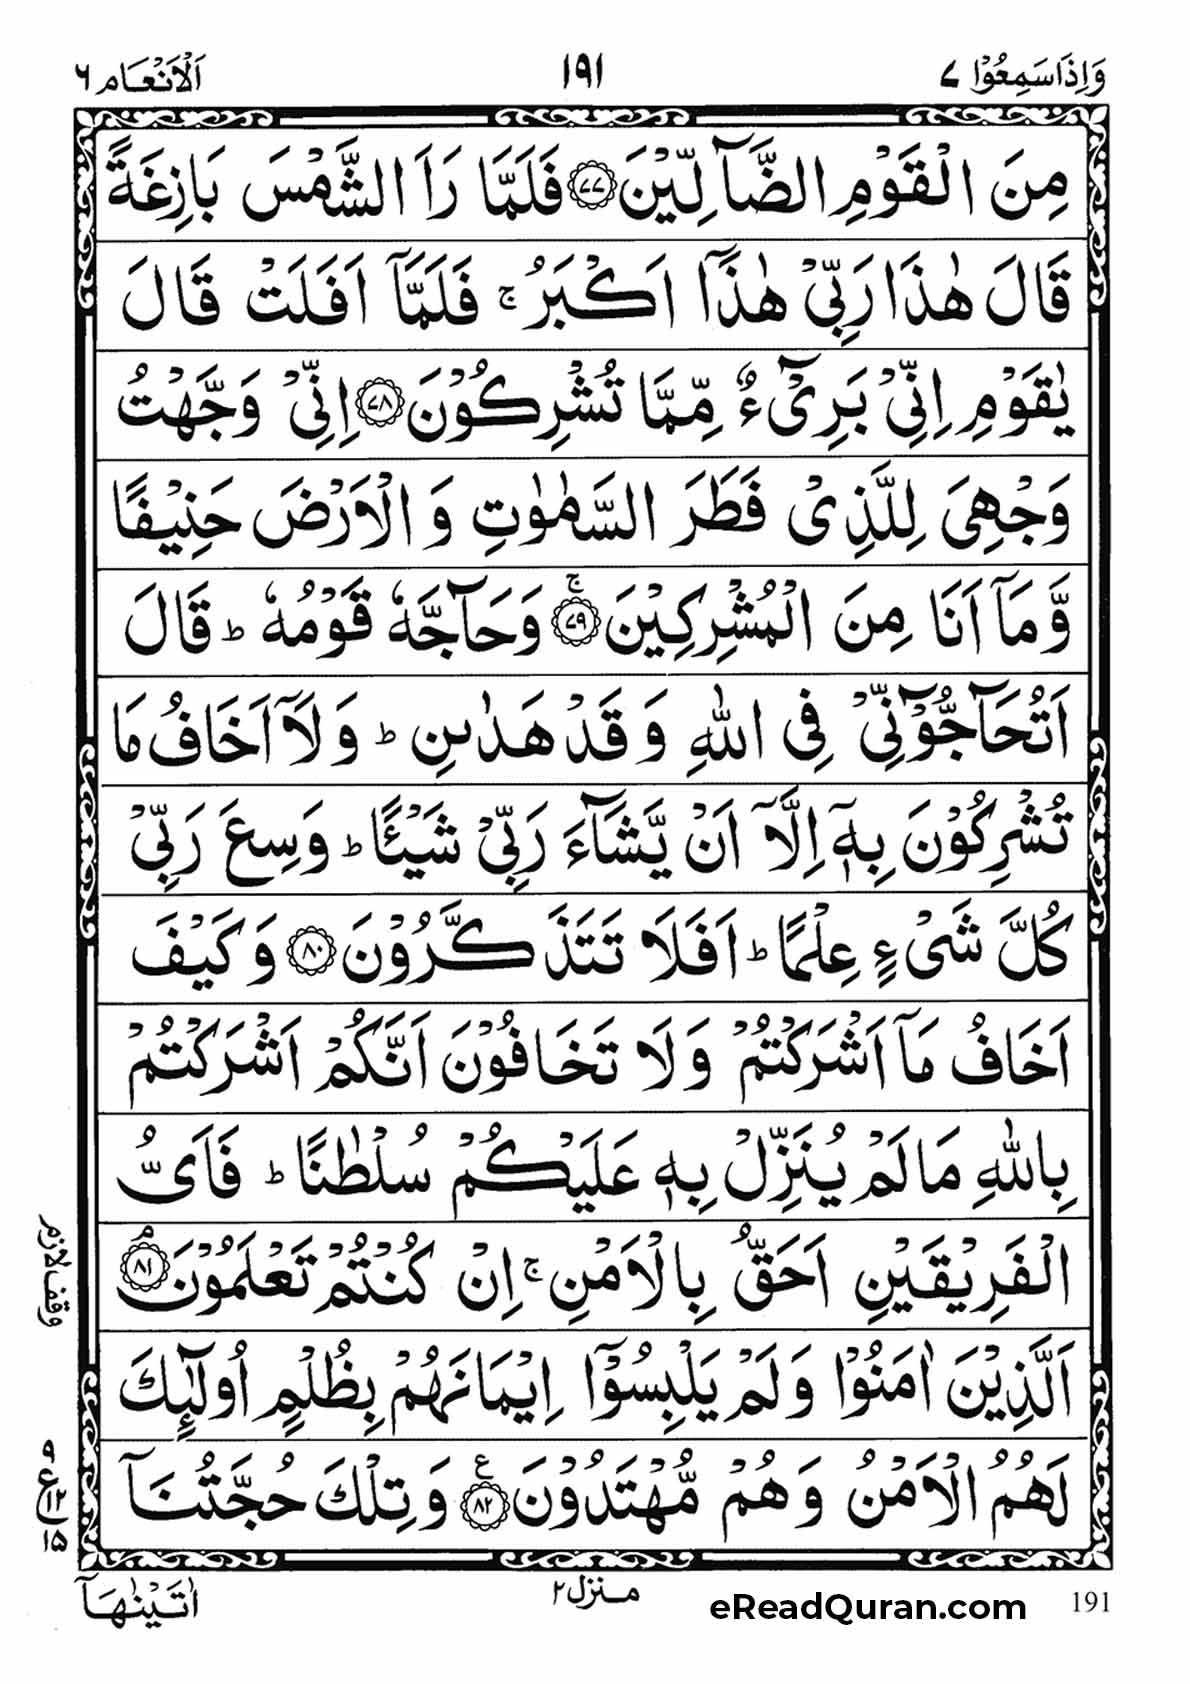 وَاِذَا سَمِعُوْا ٧
١٩١
اَلْاَنْعَام ٦
مِنَ الْقَوْمِ الضَّآلِّيْنَ ﴿٧٧﴾ فَلَمَّا رَاَ الشَّمْسَ بَازِغَةً
قَالَ هٰذَا رَبِّيْ هٰذَآ اَكْبَرُ ۚ فَلَمَّآ اَفَلَتْ قَالَ
يٰقَوْمِ اِنِّيْ بَرِيْٓءٌ مِّمَّا تُشْرِكُوْنَ ﴿٧٨﴾ اِنِّيْ وَجَّهْتُ
وَجْهِيَ لِلَّذِيْ فَطَرَ السَّمٰوٰتِ وَ الْاَرْضَ حَنِيْفًا
وَّمَآ اَنَا مِنَ الْمُشْرِكِيْنَ ﴿٧٩﴾ ۚ وَحَآجَّهٗ قَوْمُهٗ ؕ قَالَ
اَتُحَآجُّوْٓنِّيْ فِي اللّٰهِ وَ قَدْ هَدٰىنِ ؕ وَلَآ اَخَافُ مَا
تُشْرِكُوْنَ بِهٖٓ اِلَّآ اَنْ يَّشَآءَ رَبِّيْ شَيْـًٔا ؕ وَسِعَ رَبِّيْ
كُلَّ شَيْءٍ عِلْمًا ؕ اَفَلَا تَتَذَكَّرُوْنَ ﴿٨٠﴾ وَ كَيْفَ
اَخَافُ مَآ اَشْرَكْتُمْ وَلَا تَخَافُوْنَ اَنَّكُمْ اَشْرَكْتُمْ
بِاللّٰهِ مَا لَمْ يُنَزِّلْ بِهٖ عَلَيْكُمْ سُلْطٰنًا ؕ فَاَيُّ
الْفَرِيْقَيْنِ اَحَقُّ بِالْاَمْنِ ۚ اِنْ كُنْتُمْ تَعْلَمُوْنَ ﴿٨١﴾ ۘ
اَلَّذِيْنَ اٰمَنُوْا وَلَمْ يَلْبِسُوْٓا اِيْمَانَهُمْ بِظُلْمٍ اُولٰٓئِكَ
لَهُمُ الْاَمْنُ وَهُمْ مُّهْتَدُوْنَ ﴿٨٢﴾ ع وَتِلْكَ حُجَّتُنَآ
وقف لازم
٩
ع ١٢
١٥
اٰتَيْنٰهَآ
منزل ٢
eReadQuran.com
191